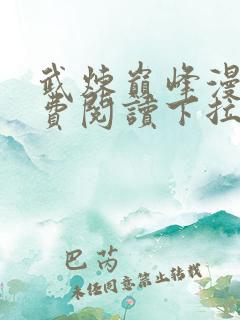 武炼巔峰漫
費閱讀下拉
巴芮
未经同意禁止转载